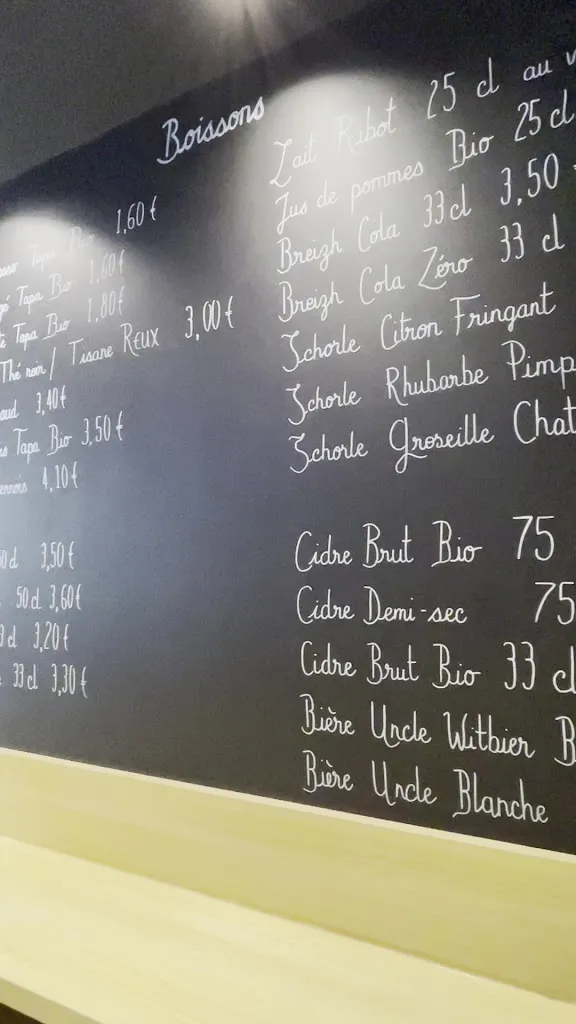 Boissons
Tapa Bio 1,60 €
Tapa Bio 1,60 €
Tapa Bio 1,80 €
Thé noir / Tisane REUX 3,00 €
aud 3,40 €
Tapa Bio 3,50 €
ennois 4,10 €
3,50 €
50 cl 3,60 €
cl 3,20 €
33 cl 3,30 €
Lait Ribot 25 cl au v
Jus de pommes Bio 25 cl
Breizh Cola 33 cl 3,50
Breizh Cola Zéro 33 cl
Schorle Citron Fringant
Schorle Rhubarbe Pimp
Schorle Groseille Chat
Cidre Brut Bio 75
Cidre Demi-sec 75
Cidre Brut Bio 33 cl
Bière Uncle Witbier B
Bière Uncle Blanche